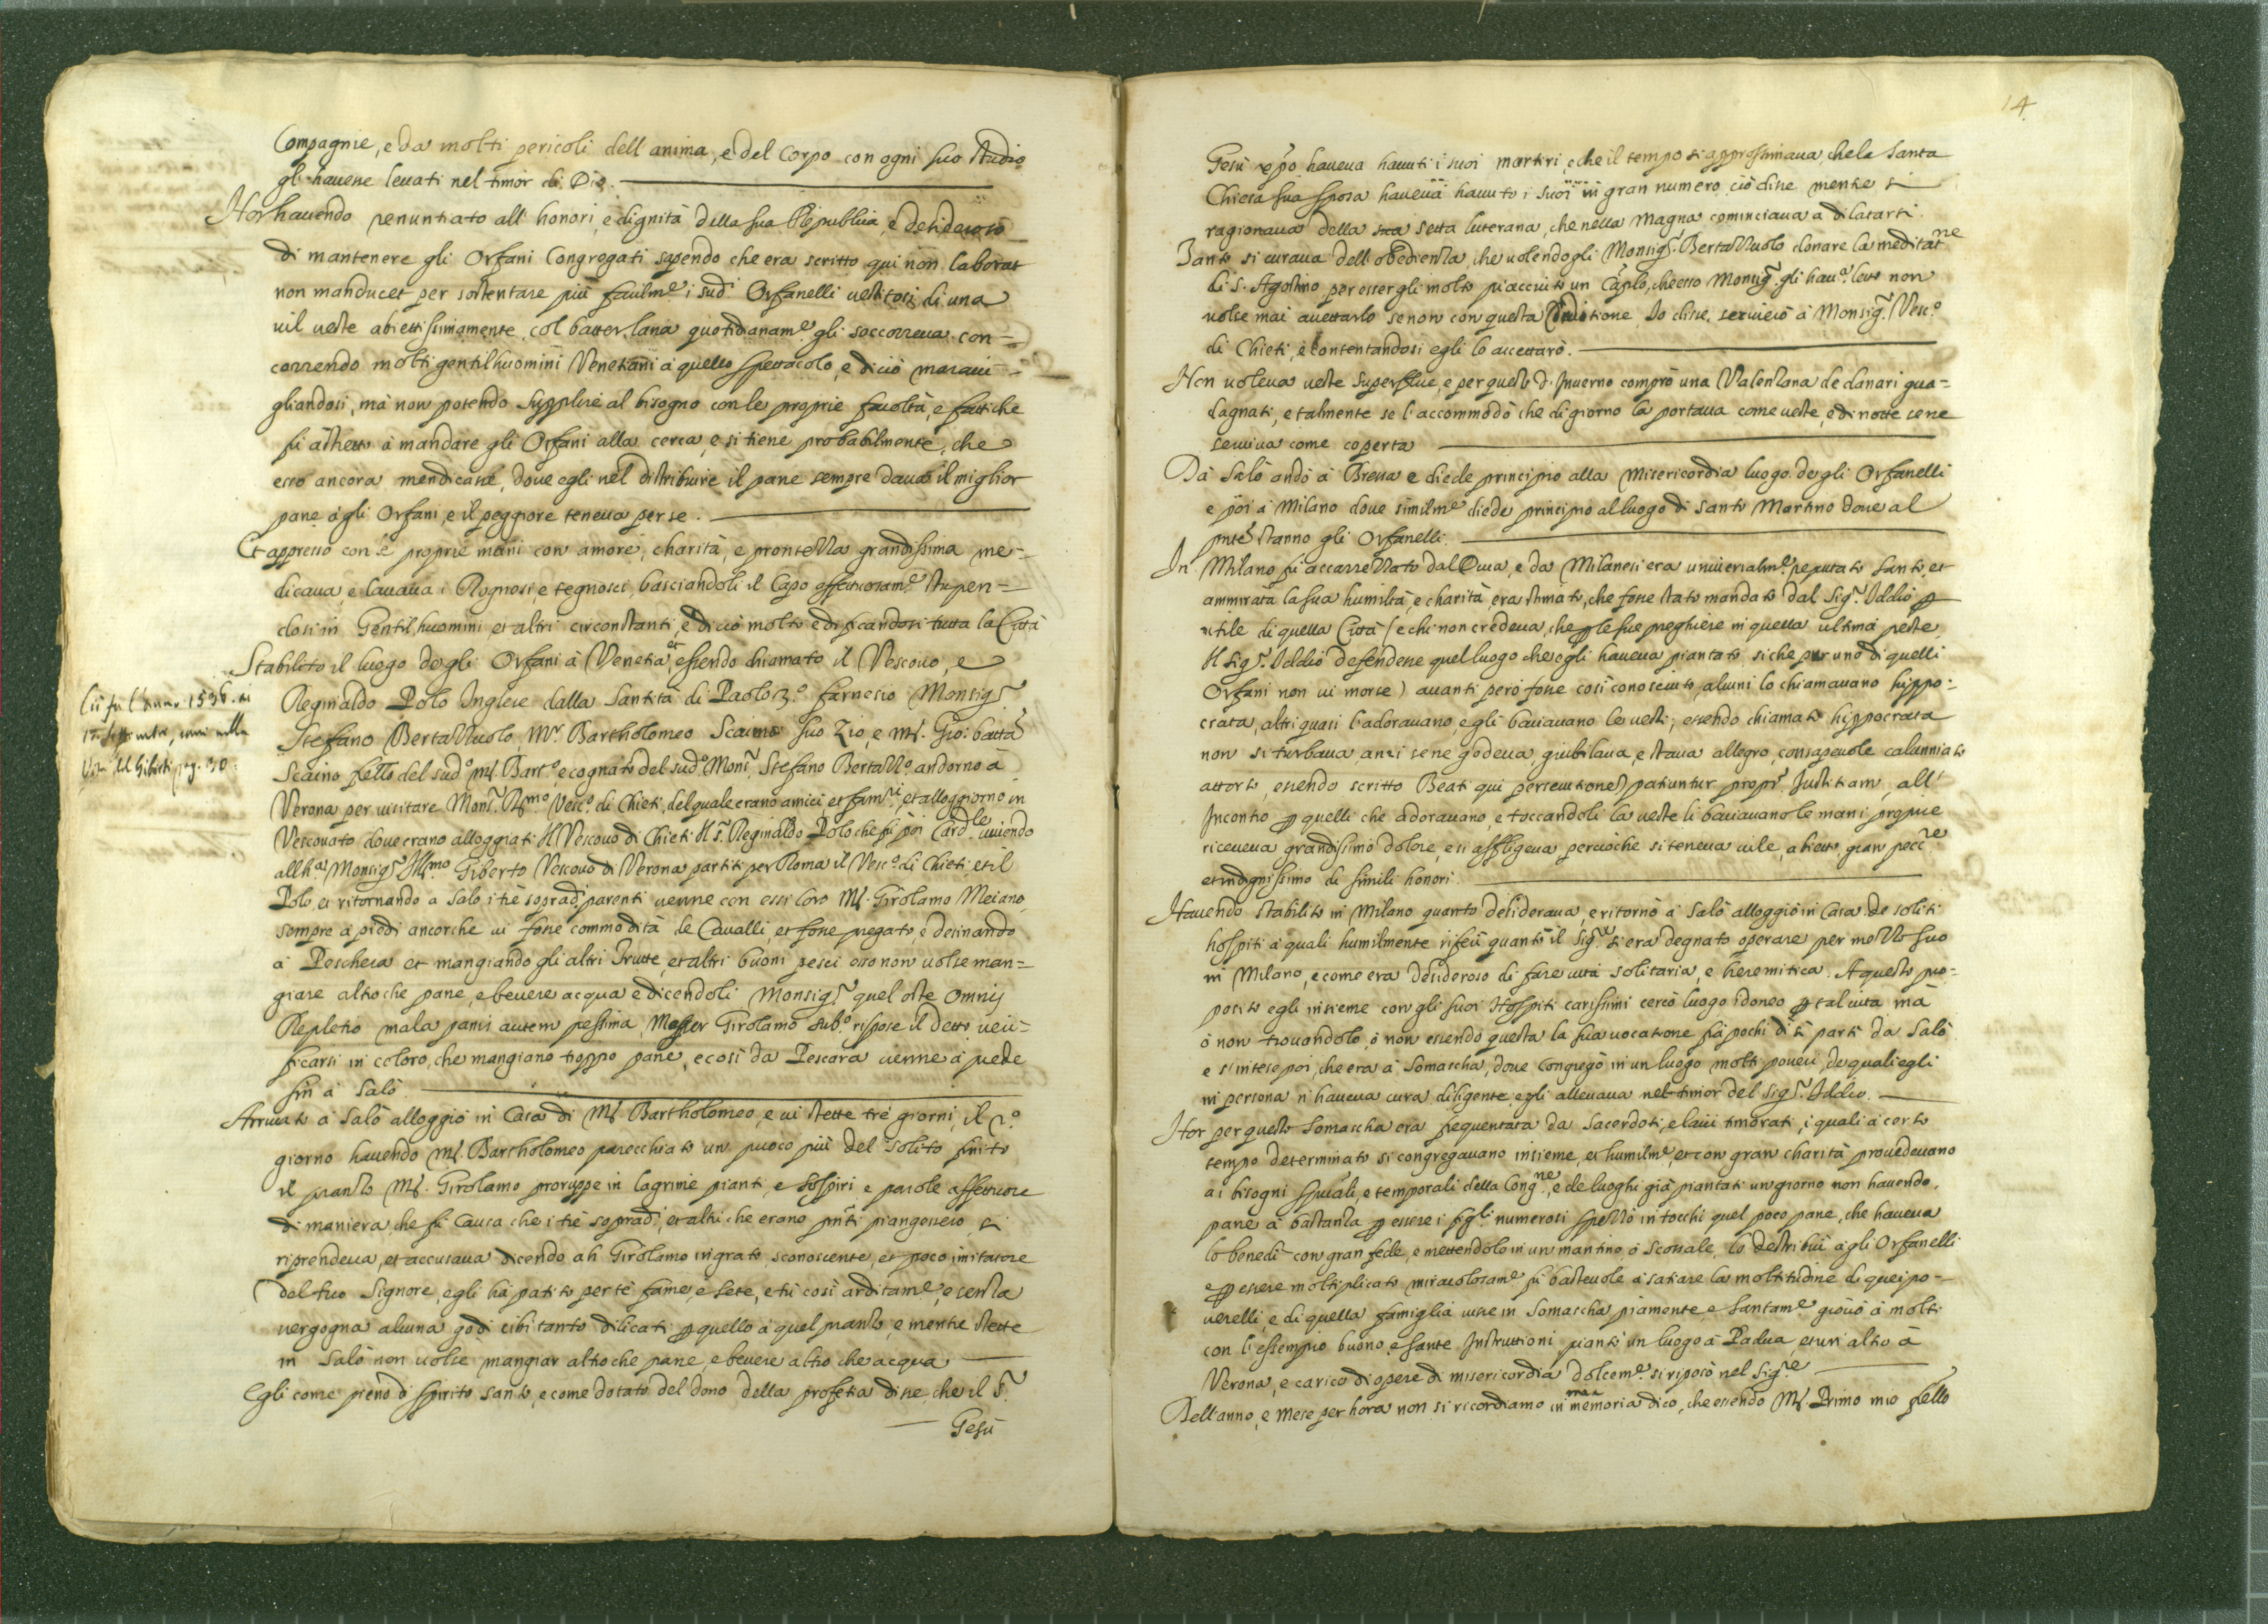 Compagnie, e da molti pericoli dell anima, e del Corpo con ogni suo studio
gli havesse levati nel timor di Dio.
Hor havendo renuntiato all' honori, e dignità della sua Republica, e desideroso
di mantenere gli Orfani Congregati sapendo che era scritto qui non laborat
non manducet per sostentare più facilm.e i sud.i Orfanelli vestitosi di una
vil veste abiettissimamente, col batter lana quotidianam.e gli soccorreva con=
correndo molti gentilhuomini Venetiani à quello spettacolo, e di ciò maravi-
gliandosi, mà non potendo supplire al bisogno con le proprie facoltà, e fattiche
fù astretto à mandare gli Orfani alla cerca, e si tiene probabilmente, che
esso ancora mendicasse, dove egli nel distribuire il pane sempre dava il miglior
pane à gli Orfani, e il peggiore teneva per se.
Et appresso con le proprie mani con amore, charità, e prontezza grandissima me=
dicava, e lavava i Rognosi e tegnosi, basciandoli il Capo affettuosam.e stupen=
dosi in Gentilhuomini et altri circonstanti, e di ciò molto edificandosi tutta la Città
Stabilito il luogo de gli Orfani à Venetia, et essendo chiamato il Vescovo, e
Reginaldo Polo Inglese dalla Santità di Paolo 3.o farnesio Monsig.r
Stefano Bertazzuolo, M.r Bartholomeo Scaino suo Zio, e M. Gio: batta
Scaino fr̃ello del sud.o M. Bart.o, e cognato del sud.o Mons.r Stefano Bertazz.o andorno à
Verona per visitare Mons.r R.mo Vesc.o di Chieti, del quale erano amici et fam.ri, et alloggiorno in
Vescovato dove erano alloggiati Il Vescovo di Chieti Il S.r Reginaldo Polo che fù poi Card.le vivendo
all h.a Monsig.r Ill.mo Giberto Vescovo di Verona partiti per Roma il Vesc.o di Chieti, et il
Polo, et ritornando a Salò i tre soprad. parenti venne con essi loro M. Girolamo Meiano
sempre a piedi ancorche vi fosse commodità de Cavalli, et fosse pregato, e desinando
à Peschera et mangiando gli altri Trutte, et altri buoni pesci esso non volse man=
giare altro che pane, e bevere acqua e dicendoli Monsig.r quel oste Omnis
Repletio mala panis autem pessima, Messer Girolamo sub.o rispose il detto veri=
ficarsi in coloro, che mangiano troppo pane, e così da Pescara venne à piede
fin à Salò.
Arrivato à Salò alloggiò in Casa di M. Bartholomeo, e vi stette trè giorni, il p.o
giorno havendo M. Bartholomeo parecchiato un puoco più del solito finito
il pranzo M. Girolamo proruppe in lagrime pianti, e sospiri, e parole affettuose
di maniera, che fù causa che i trè soprad.i, et altri che erano pñti piangessero, si
riprendeva, et accusava dicendo ah Girolamo ingrato, sconoscente, et poco imitatore
del tuo Signore, egli hà patito per tè fame, e sete, e tù così arditam.e, e senza
vergogna alcuna godi cibi tanto dilicati p quello à quel pranzo, e mentre stette
in Salò non volse mangiar altro che pane, e bevere altro che acqua
Egli come pieno di Spirito santo, e come dotato del dono della profetia disse, che il S.r
Gesù
Ciò fu l'anno 1536. ai
Settembre, come nella
Vita del Giberti pag. 30.
14
Gesù xp̃o haveva havuti i suoi martiri, e che il tempo si approssimava, che la Santa
Chiesa sua sposa haveva havuto i suoi in gran numero, ciò disse mentre si
ragionava della sua setta luterana, che nella Magna cominciava a dilatarsi
Tanto si curava dell'obedienza che volendogli Monsig.r Bertazzuolo donare la meditat.ne
di S. Agostino per essergli molto piacciuto un Capl̃o, che esso Monsig.r gli hav.a letto non
volse mai accettarlo se non con questa conditione, Io disse, scriverò à Monsig.r Vesc.o
di Chieti, e contentandosi egli lo accettarò.
Non voleva veste superflue, e per questo d'Inverno comprò una Valenzana de danari gua=
dagnati, e talmente se l'accommodò che di giorno la portava come veste, e di notte se ne
serviva come coperta
Dà Salò andò à Bressa e diede principio alla Misericordia luogo de gli Orfanelli
e poi à Milano dove similm.e diede principio al luogo di Santo Martino dove al
pñte stanno gli Orfanelli.
In Milano fù accarezzato dal Duca, e da Milanesi era universalm.e reputato santo, et
ammirata la sua humiltà, e charità era stimato, che fosse stato mandato dal Sig.r Iddio p
utile di quella Città (e chi non credeva, che p le sue preghiere in quella ultima peste
Il Sig.r Iddio defendesse quel luogo che egli haveva piantato, si che pur uno di quelli
Orfani non vi morse) avanti però fosse così conosciuto, alcuni lo chiamavano hippo=
crata, altri quasi l'adoravano, e gli baciavano le vesti; essendo chiamato hippocrata
non si turbava anzi se ne godeva, giubilava, e stava allegro, consapevole calunniato
attorto, essendo scritto Beati qui persecutionẽ patiuntur propt.r Iustitiam, all'
Incontro p quelli che adoravano, e toccandoli la veste li baciavano le mani proprie
riceveva grandissimo dolore, e si affligeva percioche si teneva vile, abietto gran pecc.re
et indignissimo di simili honori.
Havendo stabilito in Milano quanto desiderava, e ritornò à Salò alloggiò in Casa de soliti
hospiti à quali humilmente riferì quanto il Sig.re si era degnato operare per mezzo suo
in Milano, e come era desideroso di fare vita solitaria, e heremitica. A questo pro=
posito egli insieme con gli suoi Hospiti carissimi cercò luogo idoneo p tal vita mà
ò non trovandolo, ò non essendo questa la sua vocatione frà pochi dì si partì da Salò
e s'intese poi, che era à Somascha, dove Congregò in un luogo molti poveri, de quali egli
in persona n'haveva cura diligente, e gli allevava nel timor del Sig.r Iddio.
Hor per questo Somascha era frequentata da Sacerdoti, e laici timorati, i quali à certo
tempo determinato si congregavano insieme, et humilm.e, et con gran charità provedevano
ai bisogni spũali, e temporali della Cong.ne, e de luoghi già piantati un giorno non havendo
pane à bastanza p essere i figli numerosi spezzò in tocchi quel poco pane, che haveva
lo benedì con gran fede, e mettendolo in un mantino ò scossale, lo destribuì à gli Orfanelli
e p essere moltiplicato miracolosam.e fù bastevole à satiare la moltitudine di quei po=
verelli, e di quella famiglia visse in Somascha piamente, e santam.e giovò à molti
con l'essempio buono e sante Instruttioni piantò un luogo à Padua, et un altro à
Verona, e carico di opere di misericordia dolcem.e si riposò nel Sig.re
Dell'anno, e Mese per hora non si ricordiamo in memoria dico, che essendo M. Primo mio fr̃ello